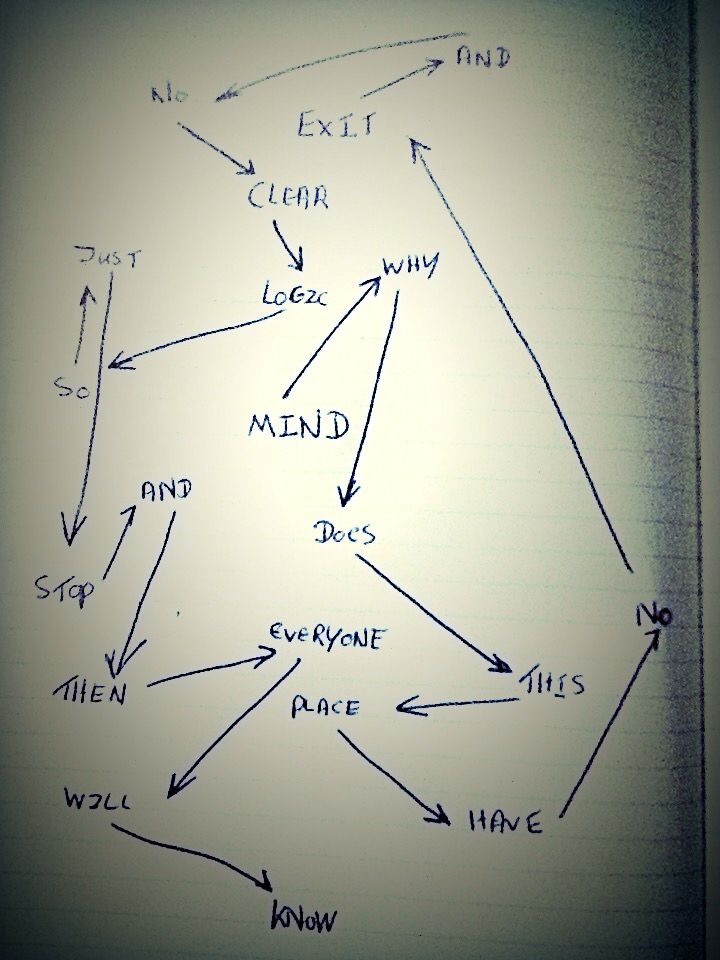 AND
No
EXIT
CLEAR
JUST
WHY
LOGIC
So
MIND
AND
DOES
STOP
No
EVERYONE
THIS
THEN
PLACE
WILL
HAVE
KNOW